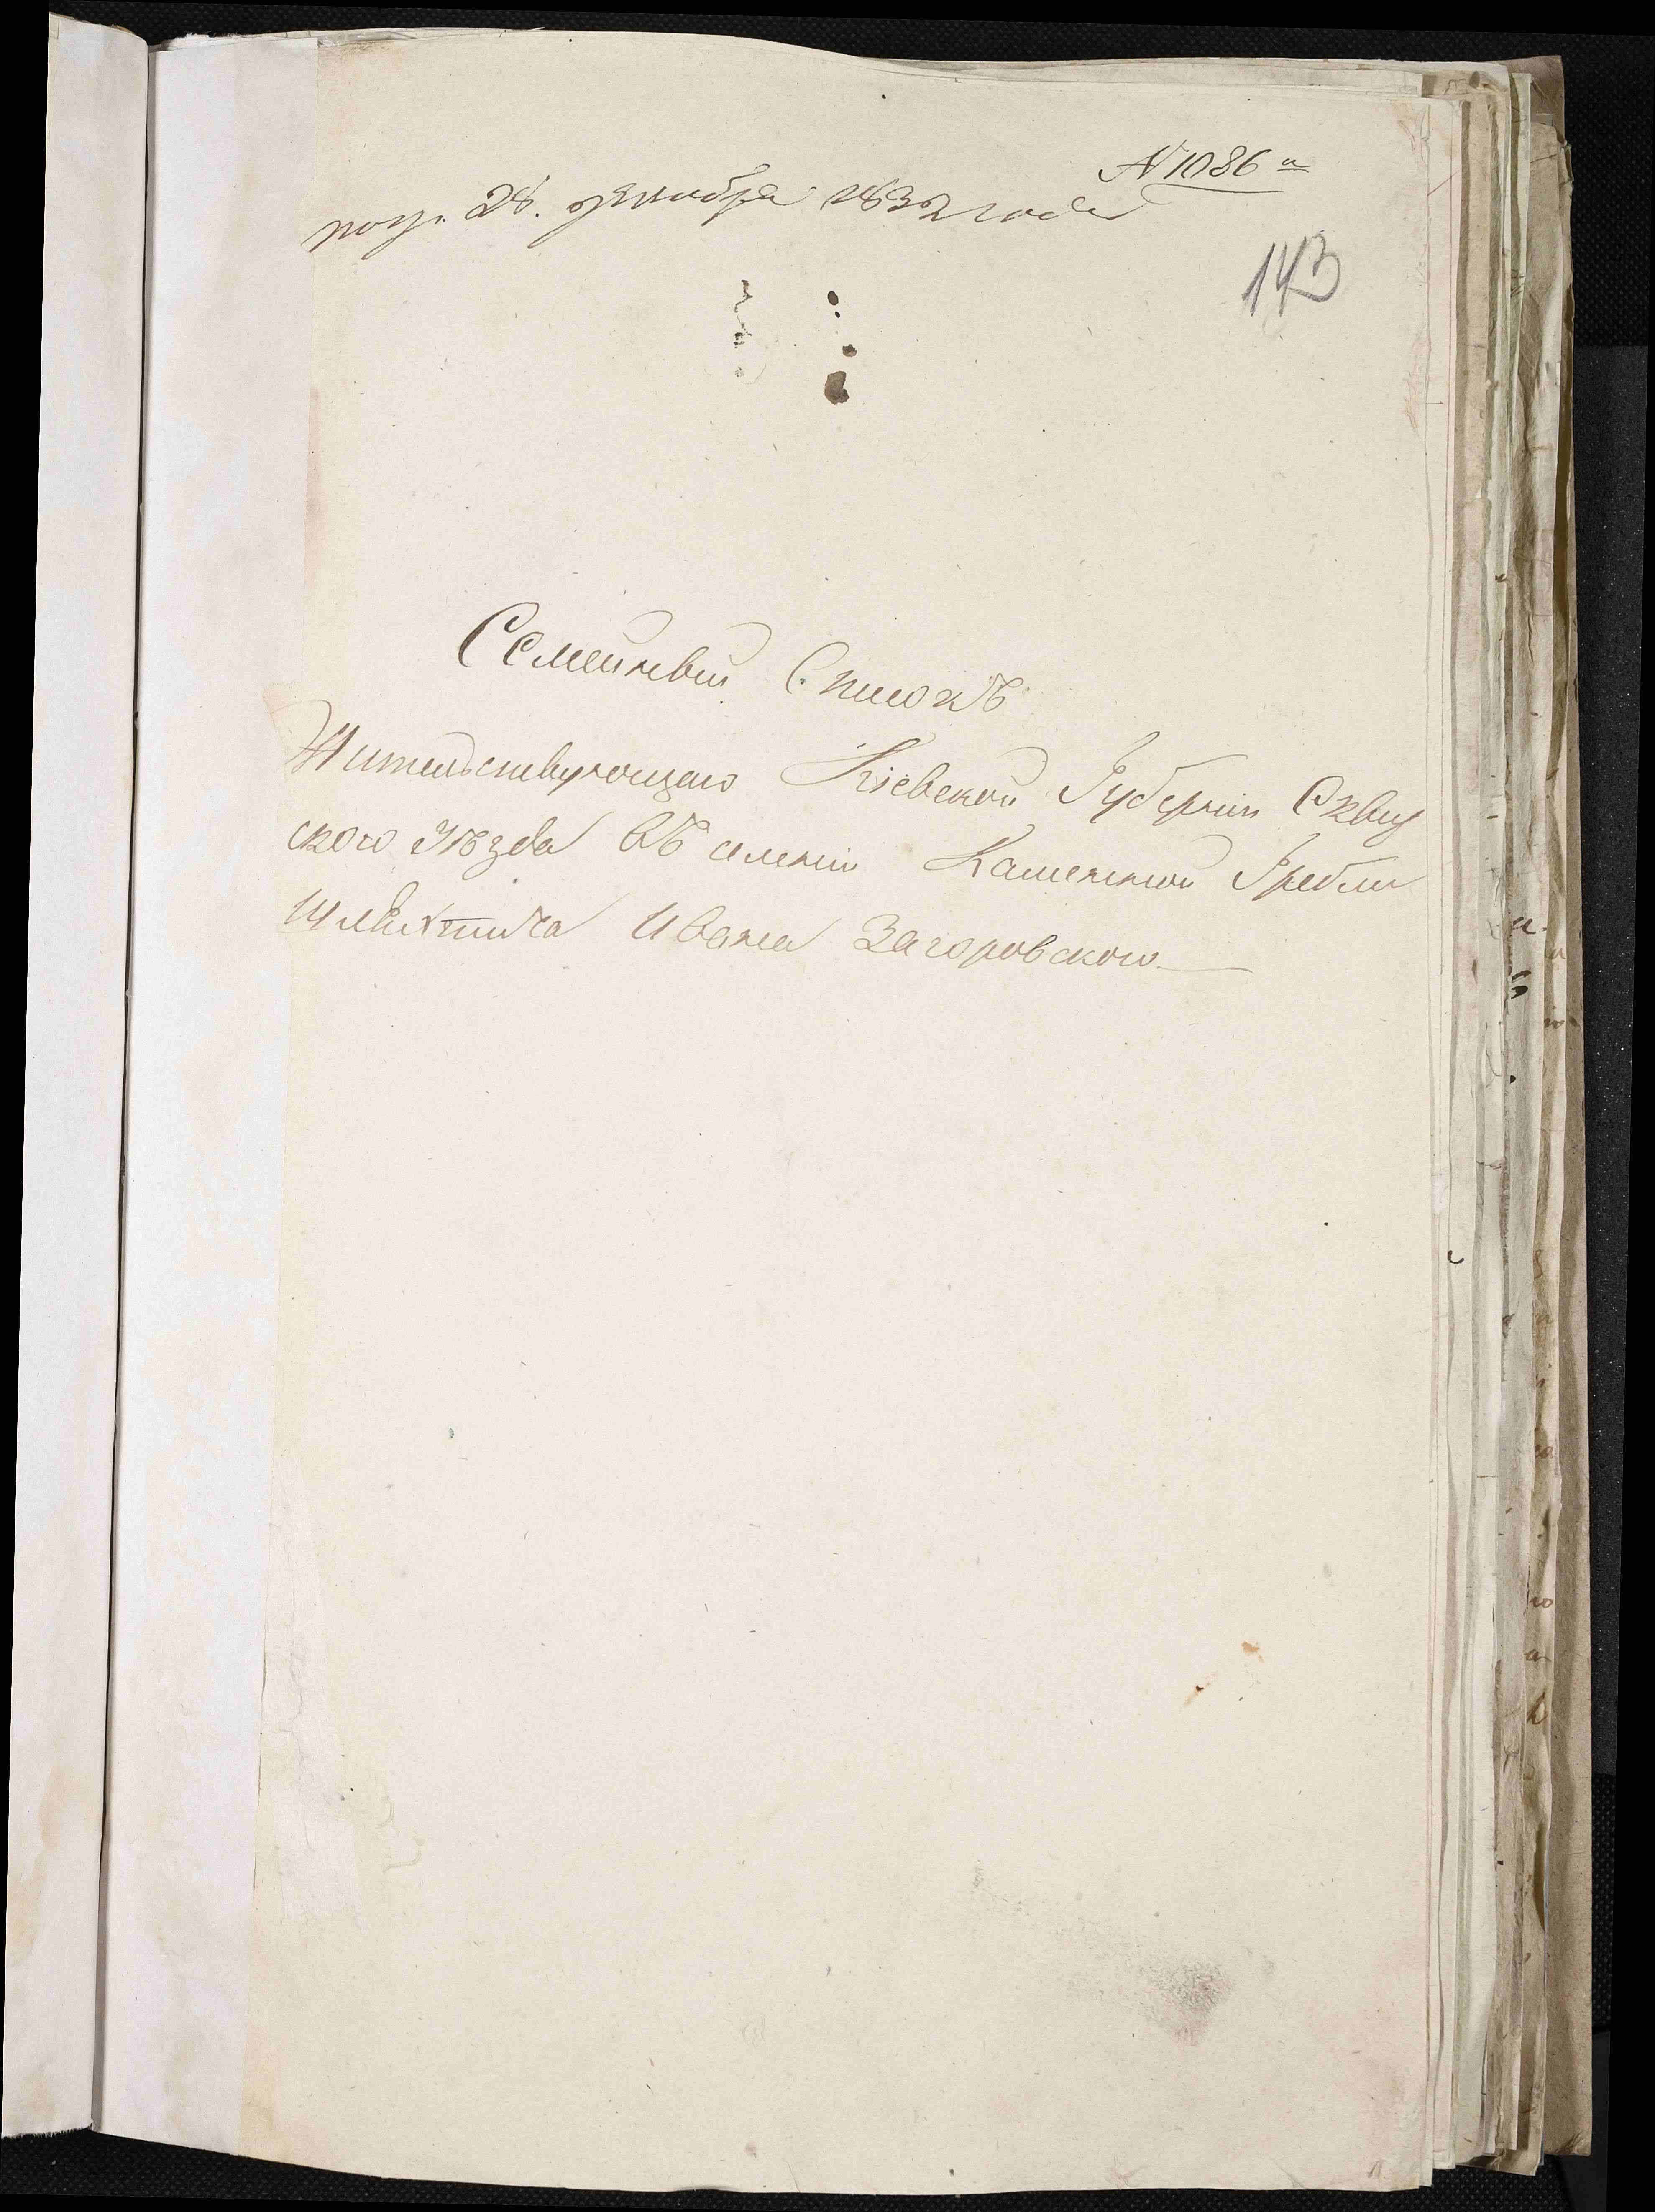 № 1086
полу. 28. декабря 1832 года
143
Семейный Списокъ
Жительствующаго Кіевской Губерніи Сквир
ского Уѣзда въ селеніи Каменной Гребли
Шляхтича Ивана Загоровского